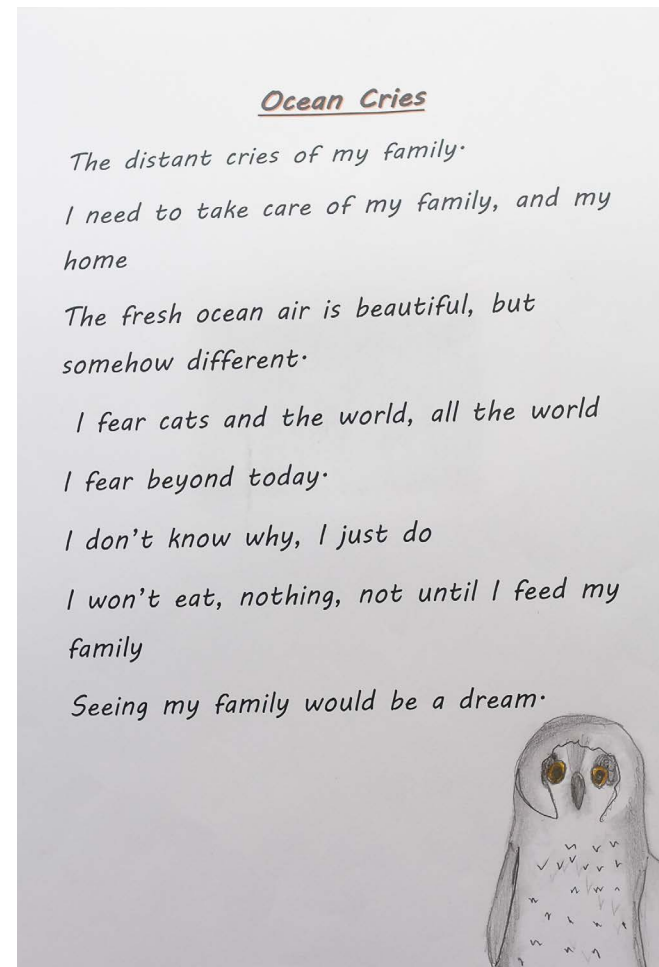 Ocean Cries
The distant cries of my family.
I need to take care of my family, and my
home
The fresh ocean air is beautiful, but
somehow different.
I fear cats and the world, all the world
I fear beyond today.
I don't know why, I just do
I won't eat, nothing, not until I feed my
family
Seeing my family would be a dream.